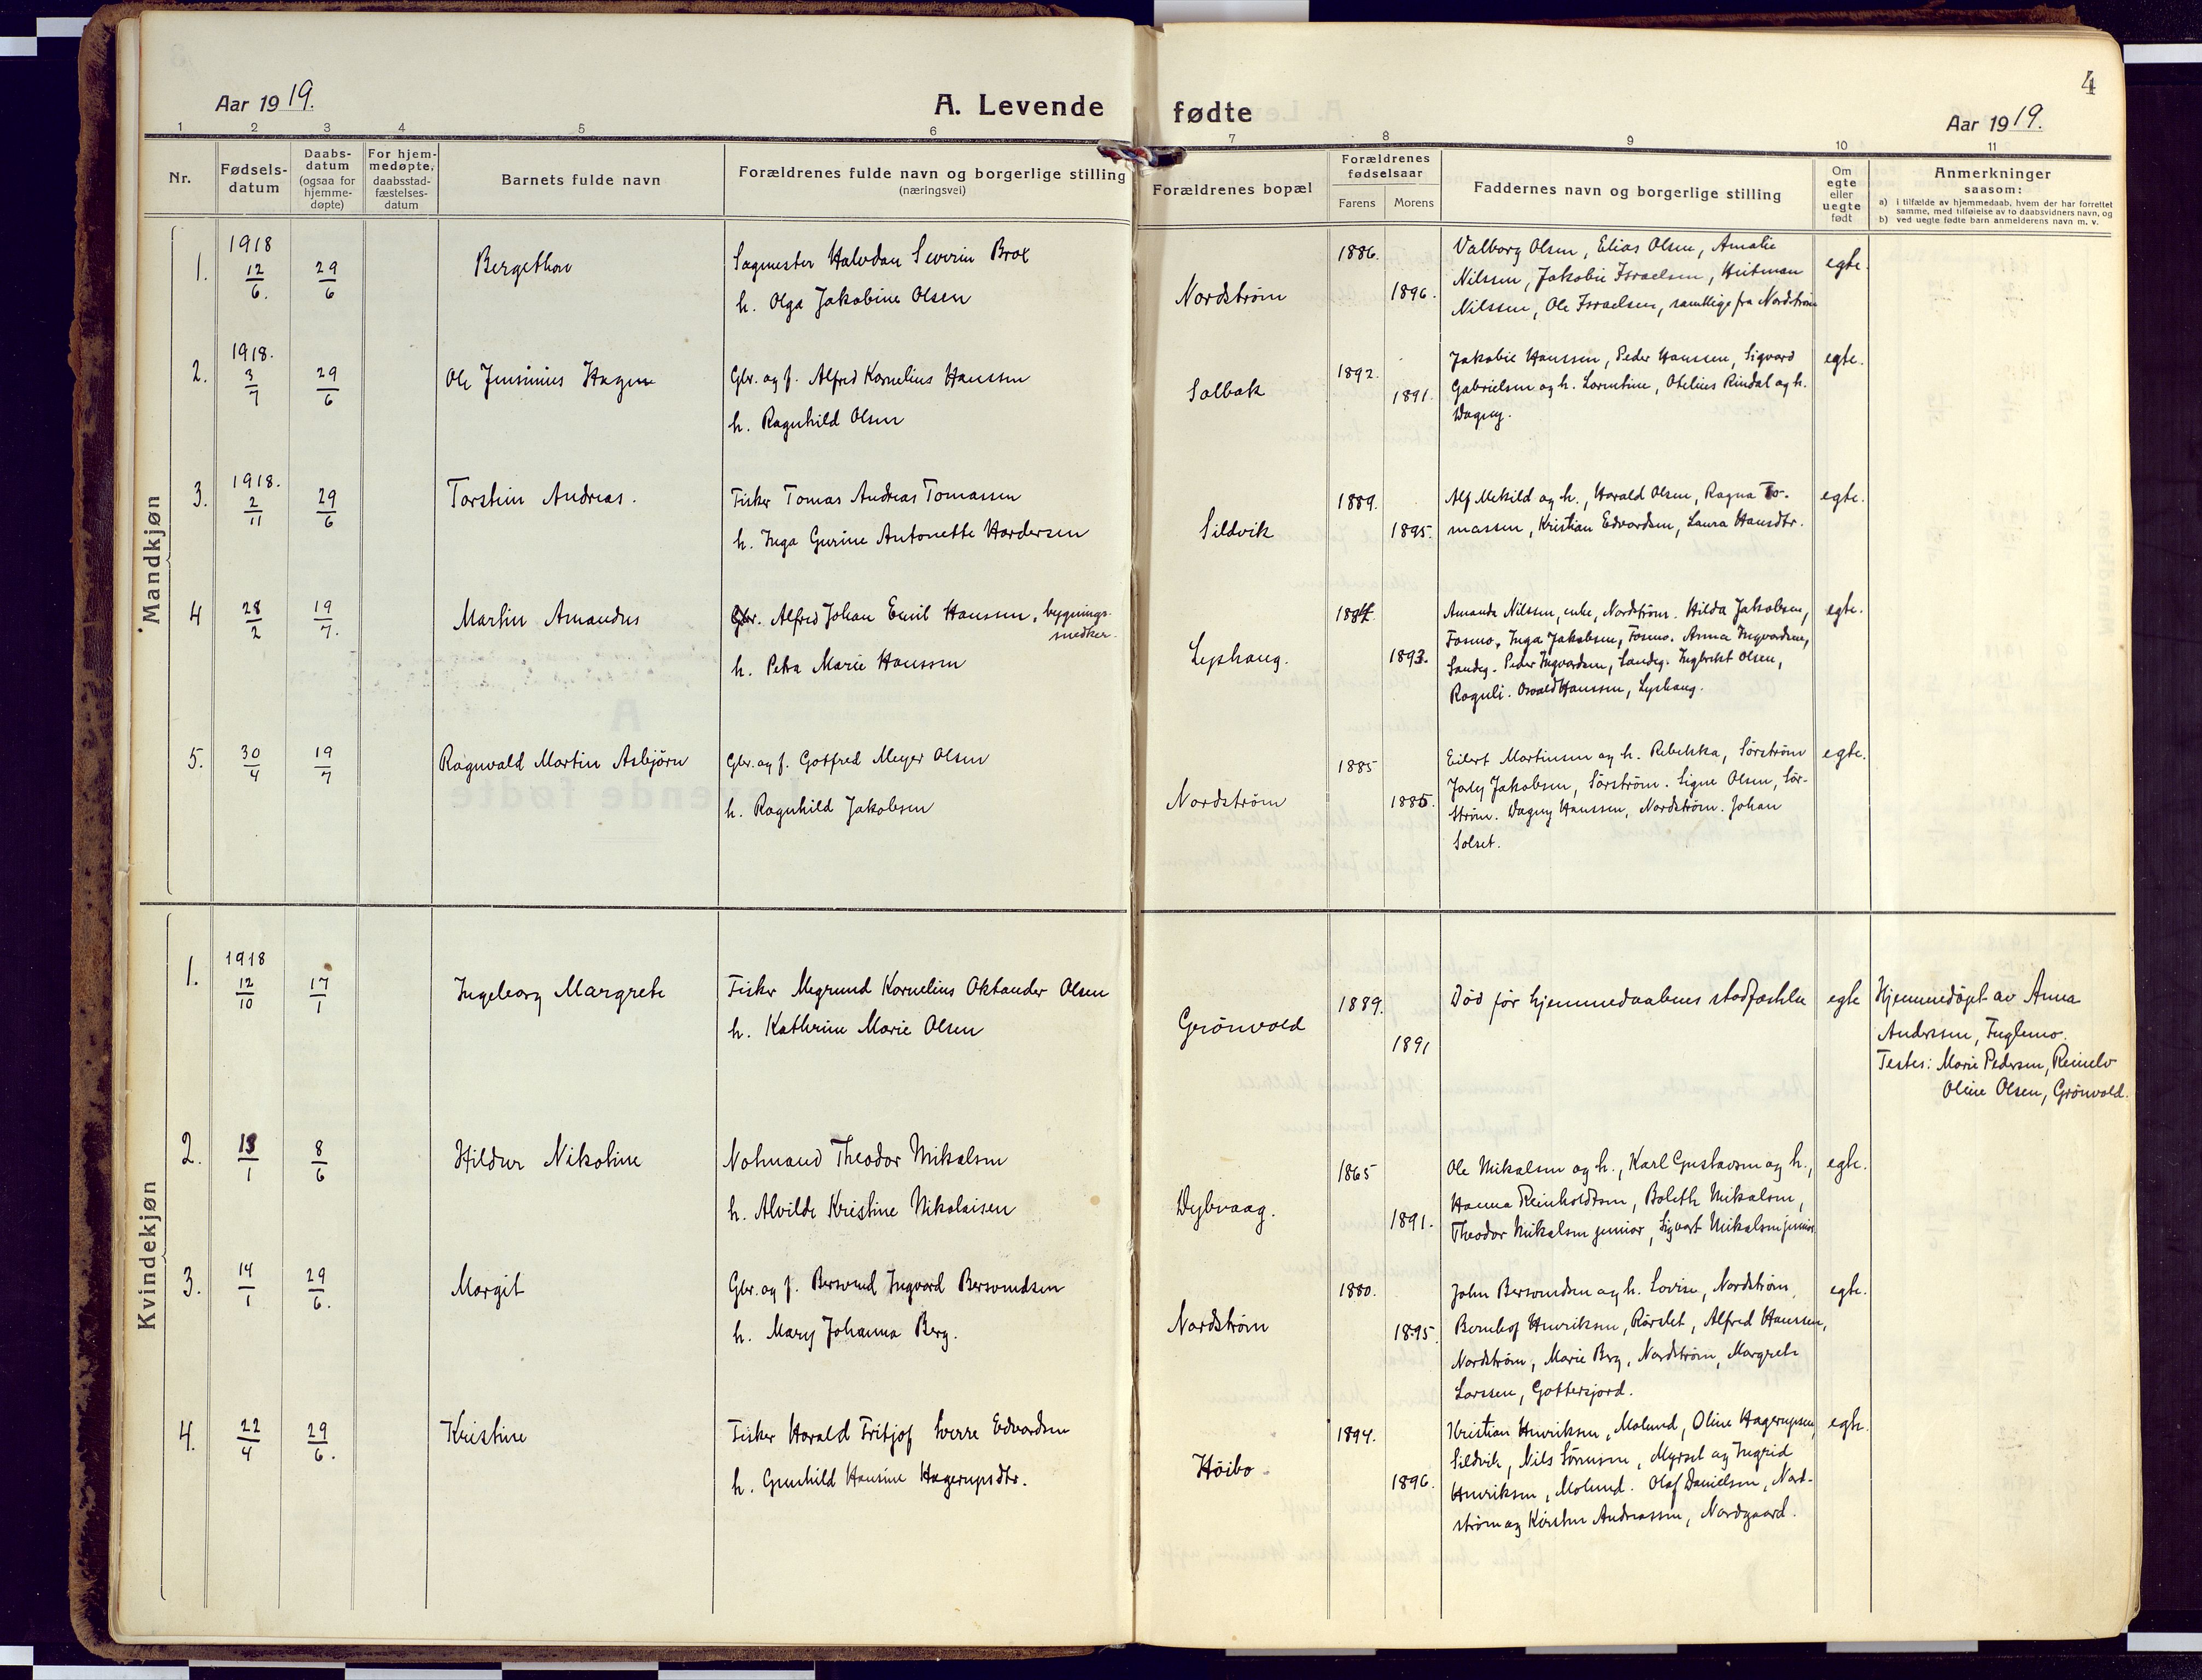 4
Aar 1919.
A. Levende fødte
Aar 1919.
1 2 3 4 5 6 7 8 9 10 11
Nr.
Fødsels-
datum
Daabs-
datum
(ogsaa for
hjemme-
døpte)
For hjem-
medøpte,
daabsstad-
fæstelses-
datum
Barnets fulde navn
Forældrenes fulde navn og borgerlige stilling
(næringsvei)
Forældrenes bopæl
Forældrenes
fødselsaar
Farens Morens
Faddernes navn og borgerlige stilling
Om
egte
eller
uegte
født
Anmerkninger
saasom:
a) i tilfælde av hjemmedaab, hvem der har forrettet
samme, med tilføielse av to daabsvidners navn, og
b) ved uegte fødte barn anmelderens navn m. v.
Mandkjøn
1. 1918 12/6. 29/6 Bergethon
Sagmester Halvdan Severin Brox
h. Olga Jakobine Olsen
Nordstrøm 1886. 1896.
Valborg Olsen, Elias Olsen, Amalie
Nilssen, Jakobie Israelsen, Heitman
Nilssen, Ole Israelsen, samtlige fra Nordstrøm
egte.
2. 1918. 3/7 29/6 Ole Jensinius Hagen
Gbr. og f. Alfred Kornelius Hanssen
h. Ragnhild Olsen
Solbak 1892. 1891.
Jakobie Hanssen, Peder Hanssen, Sigvard
Gabrielsen og h. Lorentine, Otelius Rindal og h.
Dagny.
egte.
3. 1918. 2/11 29/6 Torstein Andreas.
Fisker Tomas Andreas Tomassen
h. Inga Gurine Antonette Hardersen
Sildvik 1889. 1895.
Alf Mekild og h., Harald Olsen, Ragna To-
massen, Kristian Edvardsen, Laura Hansdtr.
egte.
4 28/2 19/7. Martin Amandus
Gbr. Alfred Johan Emil Hanssen, bygnings-
smedker.
h. Petra Marie Hanssen
Lyshaug. 1887. 1893.
Amanda Nilssen, enke, Nordstrøm. Hilda Jakobsen,
Fosmo, Inga Jakobsen, Fosmo. Anna Ingvardsen,
Sandeg. Peder Ingvardsen, Sandeg. Ingbrikt Olsen,
Rognli. Osvald Hanssen, Lyshaug.
egte.
5. 30/4 19/7 Ragnvald Martin Asbjørn
Gbr. og f. Gotfred Meyer Olsen
h. Ragnhild Jakobsen
Nordstrøm 1885 1885.
Eilert Martinsen og h. Rebekka, Sørstrøm
Jakobsen, Sørstrøm. Signe Olsen, Sør-
strøm. Dagny Hanssen, Nordstrøm. Johan
Solset.
egte.
Kvindekjøn
1. 1918 12/10 17/1 Ingeborg Margrete
Fisker Megrund Kornelius Oktander Olsen
h. Kathrine Marie Olsen
Grönvold 1889. 1891
Död før hjemmedaabens stadfæstelse
egte
Hjemmedöpt av Anna
Anderssen, Fuglemo.
Testes: Marie Pedersen, Reinelv
Oline Olsen, Grönvold.
2. 13/1 8/6 Hildur Nikoline
Notmand Theodor Mikalsen
h. Alvilde Kristine Nikolaisen
Dybvaag. 1865 1891.
Ole Mikalsen og h., Karl Gustavsen og h.,
Hanna Reinholdtsen, Boleth Mikalsen,
Theodor Mikalsen junior, Sigvart Mikalsen junior
egte.
3. 14/1 29/6. Margit
Gbr. og f. Bersvend Ingvard Bersvendsen
h. Mary Johanna Berg.
Nordstrøm 1880. 1895.
John Bersvendsen og h. Lovise, Nordstrøm,
Bernhof Henriksen, Rørslet, Alfred Hanssen,
Nordstrøm, Marie Berg, Nordstrøm, Margrete
Larssen, Gottesjord.
egte.
4. 22/4 29/6. Kristine
Fisker Harald Fritjof Sverre Edvardsen
h. Gunhild Hansine Hagerupsdtr.
Høibo 1894. 1896.
Kristian Henriksen, Molund, Oline Hagerupsen,
Sildvik, Nils Sørensen, Myrset og Ingrid
Henriksen, Molund. Olaf Danielsen, Nord-
strøm og Kirsten Andreassen, Nordgaard.
egte.